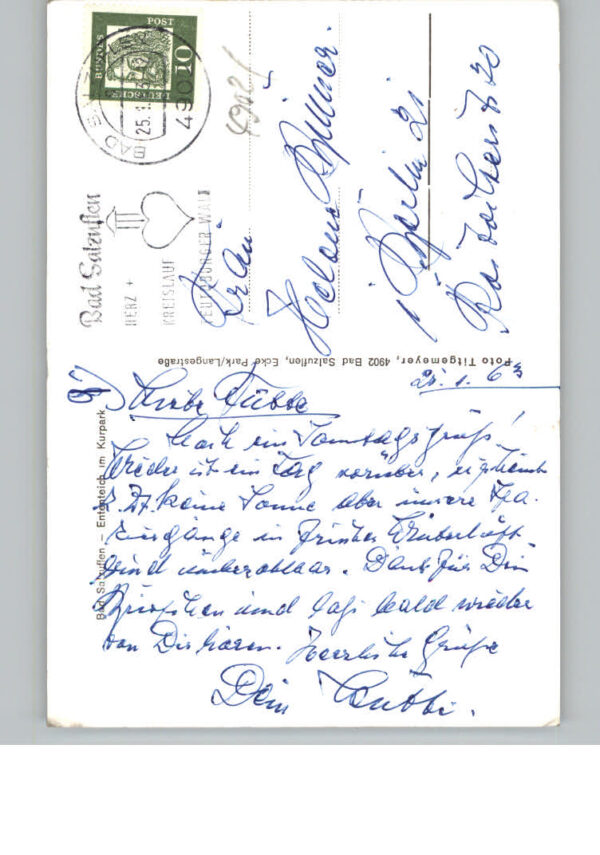 DEUTSCHE BUNDESPOST
10
BAD SALZUFLEN
25.1.
4901
49021
Bad Salzuflen
HERZ +
KREISLAUF
TEUTOBURGER WALD
Frau
Helene
1 Berlin 21
Foto Titgemeyer, 4902 Bad Salzuflen, Ecke Park/Langestraße
Bad Salzuflen – Ententeich im Kurpark
25.1.63
Liebe
Noch ein Sonntagsgruß!
Wieder ist ein Tag vorüber,
z. Zt. keine Sonne aber unsere
Ausgänge in frischer Winterluft
sind unbezahlbar. Dank für Dein
Briefchen und laß bald wieder
von Dir hören. Herzliche Grüße
Dein